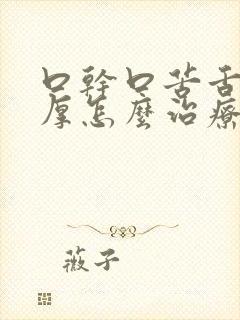 口幹口苦舌
厚怎麼治療
薇子